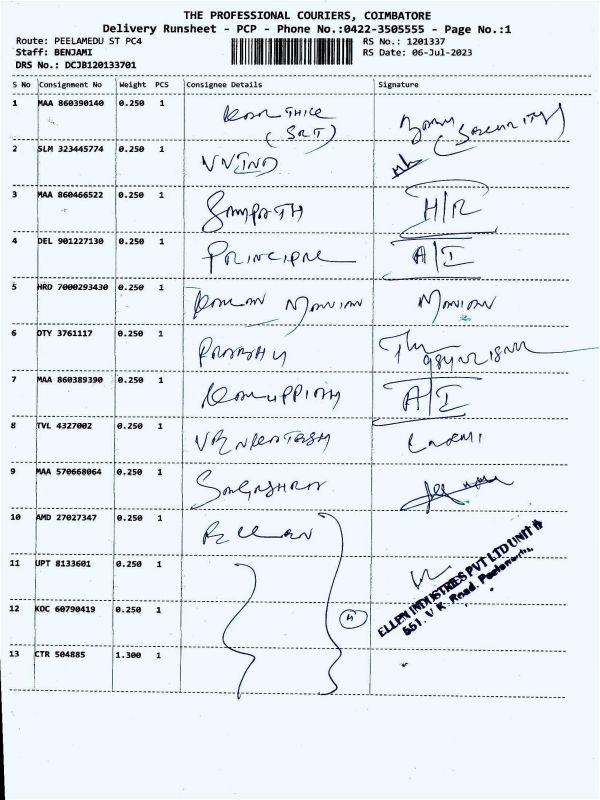 THE PROFESSIONAL COURIERS, COIMBATORE
Delivery Runsheet - PCP - Phone No.:0422-3505555 - Page No.:1
Route: PEELAMEDU ST PC4
Staff: BENJAMI
DRS No.: DCJB120133701
RS No.: 1201337
RS Date: 06-Jul-2023
S No Consignment No Weight PCS Consignee Details Signature
1 MAA 860390140 0.250 1
(SRI) (SECURITY)
2 SLM 323445774 0.250 1
3 MAA 860466522 0.250 1 SAMPATH H/R
4 DEL 901227130 0.250 1 PRINCIPAL A/I
5 HRD 7000293430 0.250 1 MANIAN MANIAN
6 OTY 3761117 0.250 1
7 MAA 860389390 0.250 1 KARUPPIAH A/I
8 TVL 4327002 0.250 1 VENKATESH LAXMI
9 MAA 570668064 0.250 1
10 AMD 27027347 0.250 1 ELLEN
11 UPT 8133601 0.250 1
12 KOC 60790419 0.250 1 4
13 CTR 504885 1.300 1
ELLEN INDUSTRIES PVT LTD UNIT II
551, V.K. Road,